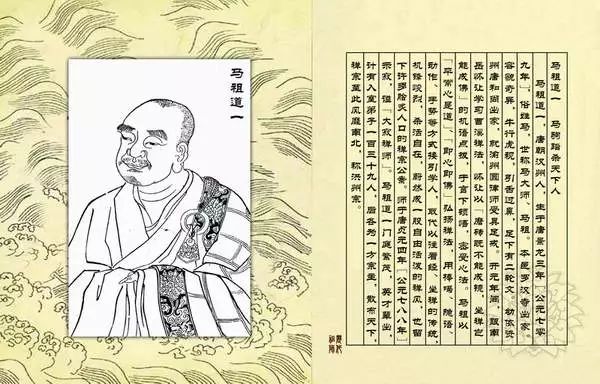 马祖道一
马祖道一 马驹踏杀天下人
马祖道一，唐朝汉州人，生于唐景龙三年〔公元七零
九年〕，俗姓马，世称马大师、马祖。本邑罗汉寺出家，
容貌奇异，牛行虎视，引舌过鼻，足下有二轮文，幼依资
州唐和尚出家，就渝州圆律师受具足戒。开元年间，跟南
岳怀让学习曹溪禅法，怀让以「磨砖既不能成镜，坐禅岂
能成佛」的机语点拨，于言下顿悟，密受心法。马祖以
「平常心是道」、「即心即佛」弘扬禅法，用棒喝、隐语、
动作、手势等方式接引学人，取代以往看经、坐禅的传统，
机锋峻烈，杀活自在，蔚然成一股自由活泼的禅风，也留
下许多脍炙人口的禅宗公案。师于唐贞元四年〔公元七八八年〕
示寂，谥「大寂禅师」。马祖道一门庭繁茂，英才辈出，
计有入室弟子一百三十九人，后各为一方宗主，散布天下，
禅宗至此风靡南北，称洪州宗。